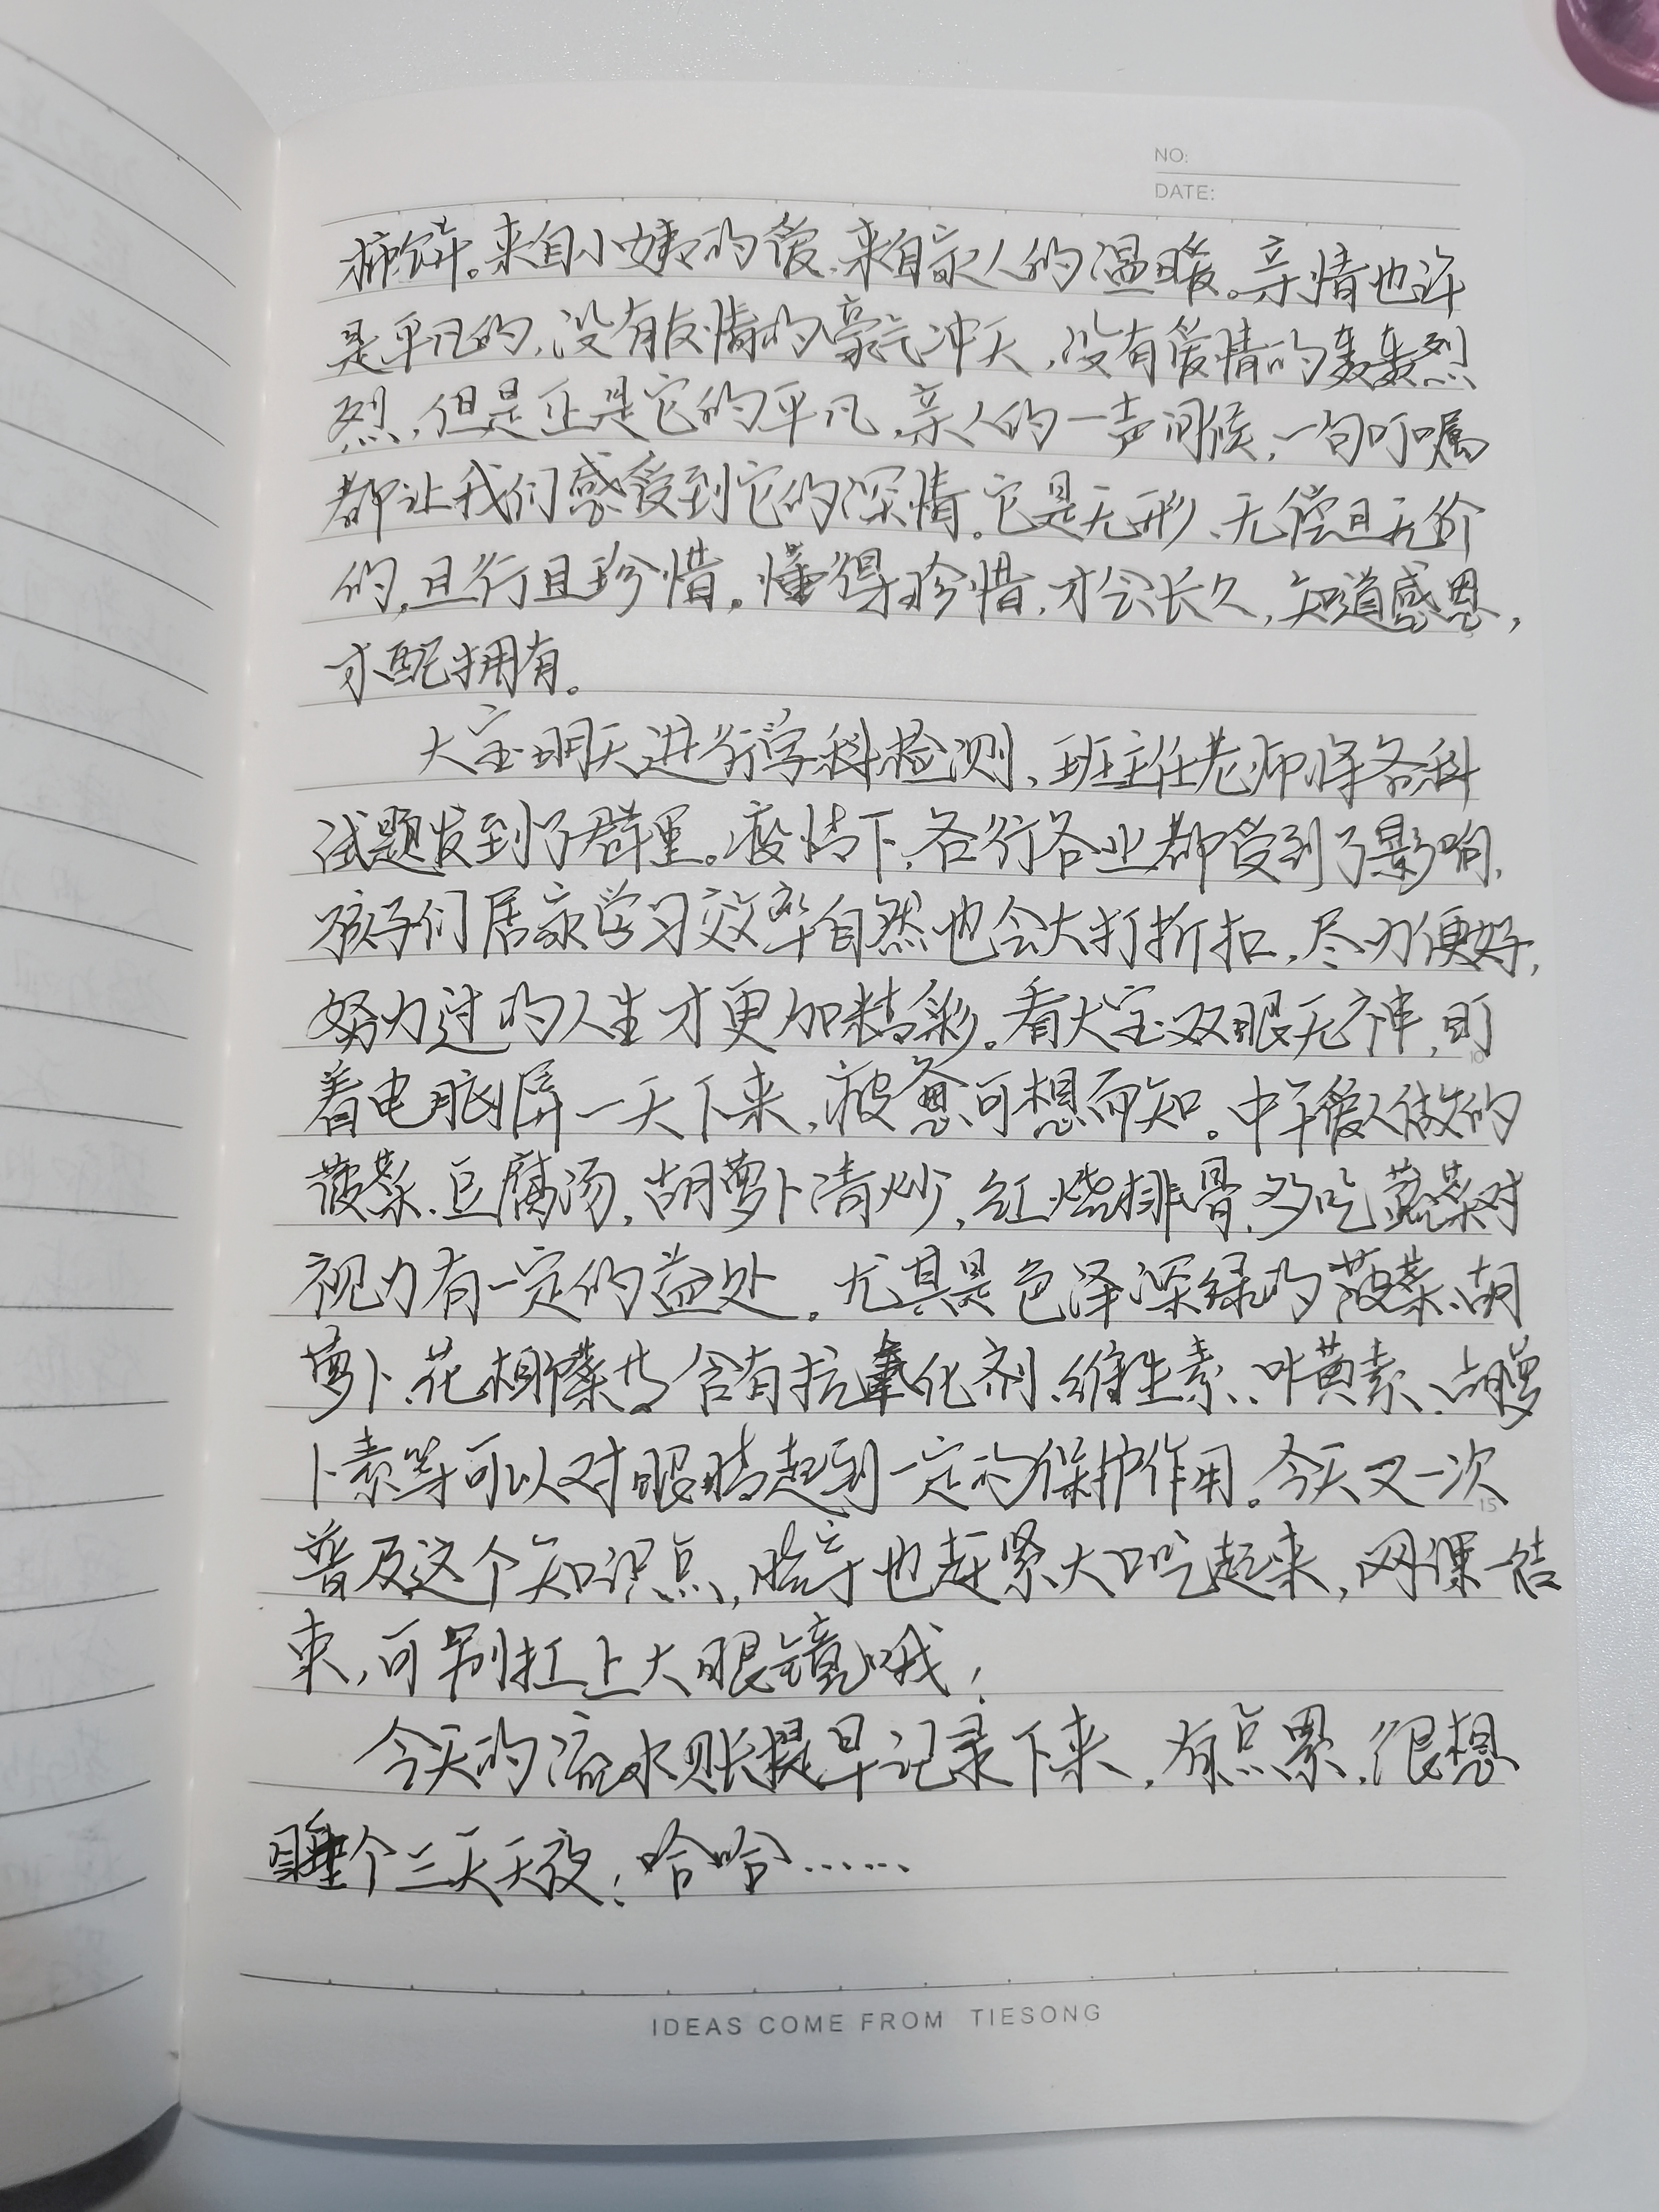 NO:
DATE:
柿饼。来自小姨的爱,来自家人的温暖。亲情也许
是平凡的,没有友情的豪气冲天,没有爱情的轰轰烈
烈,但是正是它的平凡,亲人的一声问候,一句叮嘱
都让我们感受到它的深情。它是无形、无偿且无价
的,且行且珍惜。懂得珍惜,才会长久,知道感恩,
才配拥有。
大宝明天进行学科检测,班主任老师将各科
试题发到了群里。疫情下,各行各业都受到了影响,
孩子们居家学习效率自然也会大打折扣,尽力便好,
努力过的人生才更加精彩。看大宝双眼无神,盯
着电脑屏一天下来,疲惫可想而知。中午爱人做的
菠菜、豆腐汤,胡萝卜清炒,红烧排骨,多吃蔬菜对
视力有一定的益处。尤其是色泽深绿的菠菜、胡
萝卜、花椰菜等含有抗氧化剂、维生素、叶黄素、胡萝
卜素等可以对眼睛起到一定的保护作用。今天又一次
普及这个知识点,孩子也赶紧大口吃起来,网课一结
束,可别扛上大眼镜哦!
今天的流水账提早记录下来,有点累,很想
睡个三天天夜!哈哈……
10
15
IDEAS COME FROM TIESONG